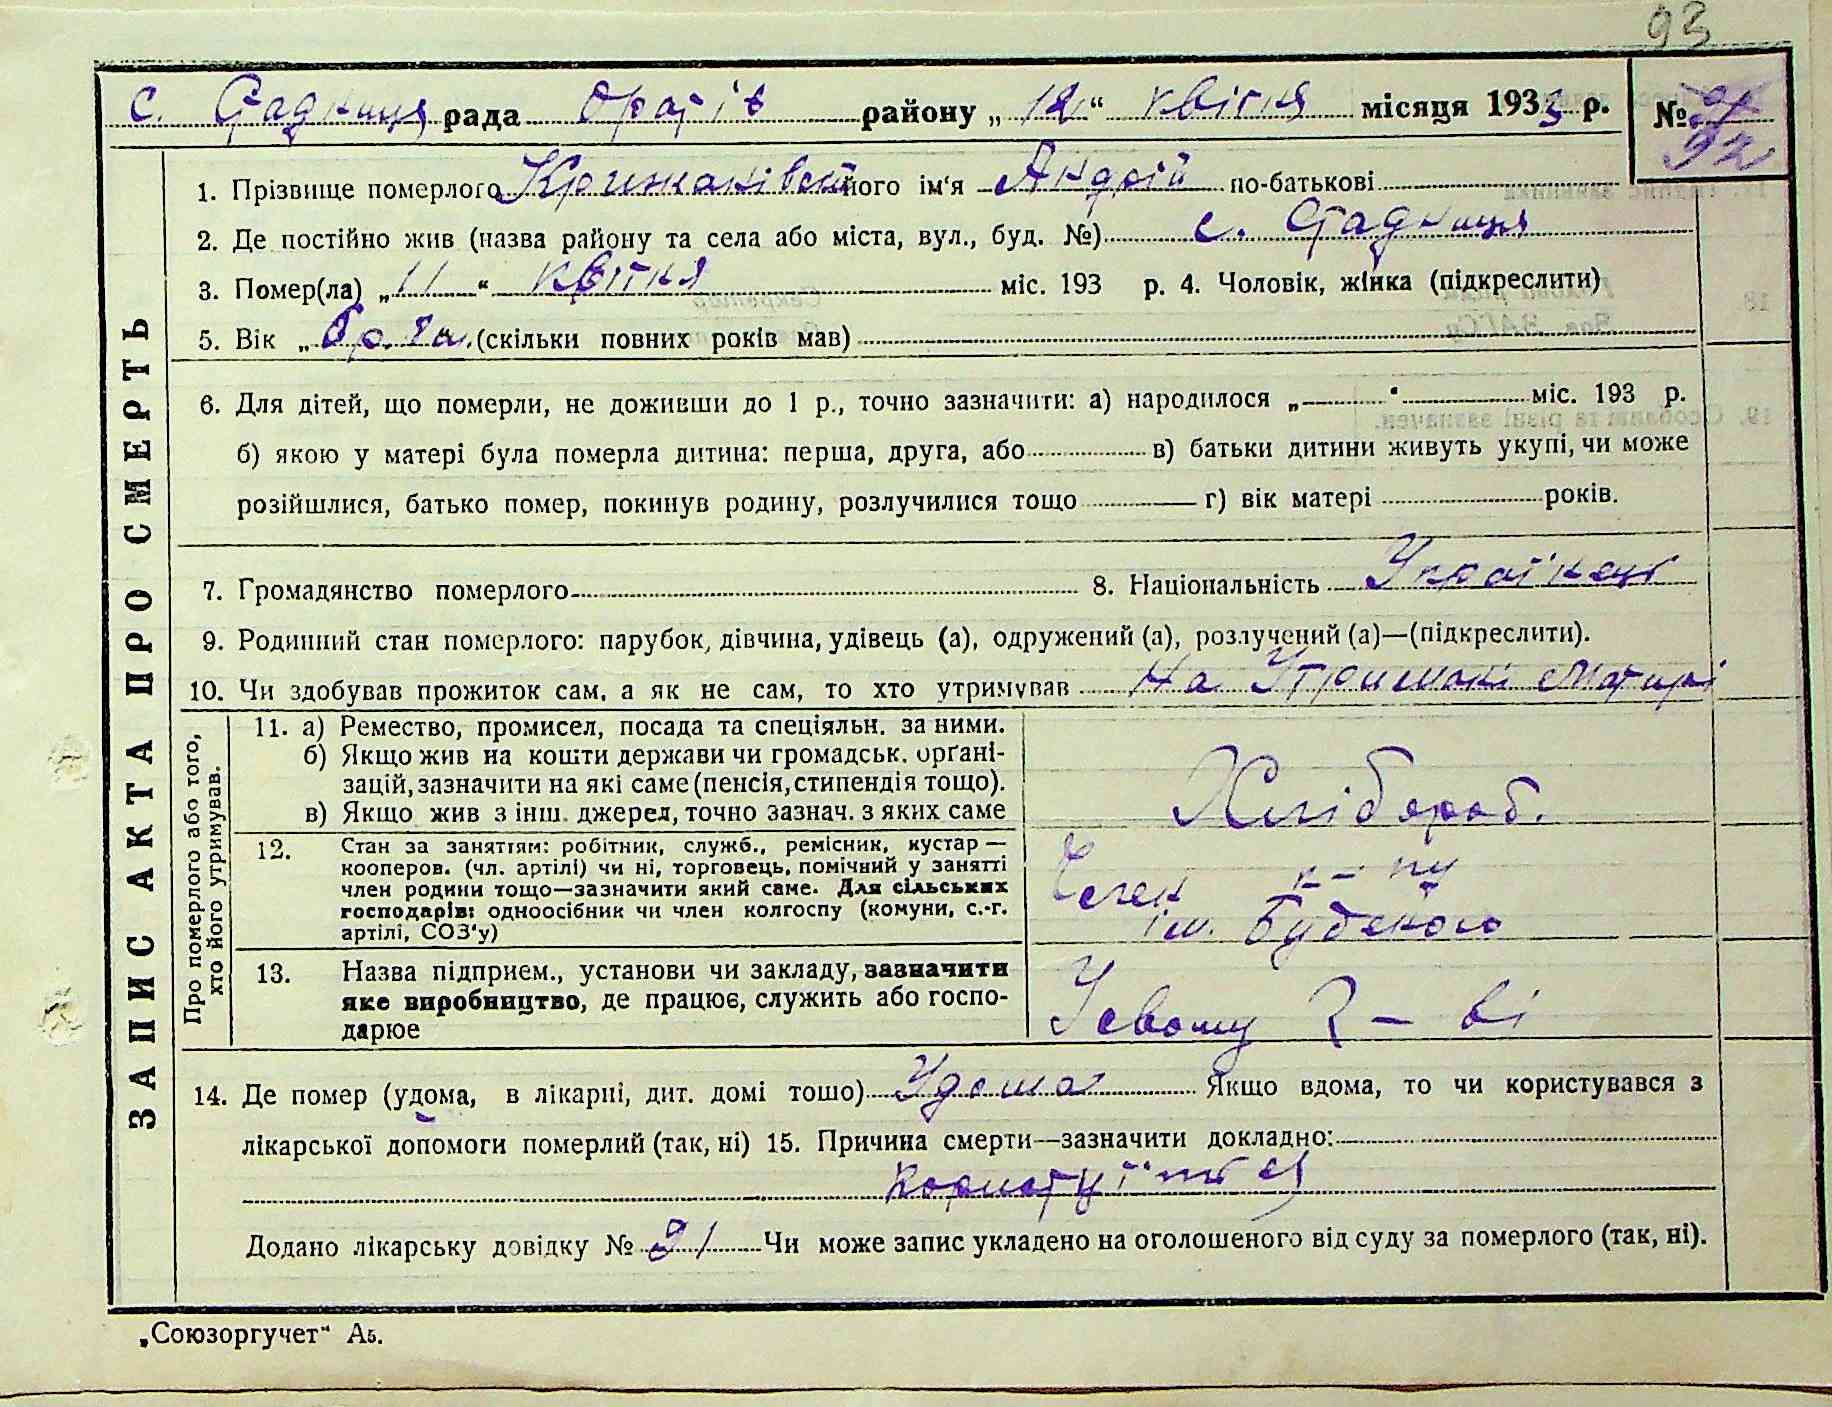 93
с. Стадниця рада Оратів району „ 12 “ квітня місяця 1933 р. № 92
ЗАПИС АКТА ПРО СМЕРТЬ
1. Прізвище померлого Крижанівський його ім'я Андрій по-батькові
2. Де постійно жив (назва району та села або міста, вул., буд. №) с. Стадниця
3. Помер(ла) „ 11 “ квітня міс. 193 р. 4. Чоловік, жінка (підкреслити)
5. Вік „ (скільки повних років мав)
6. Для дітей, що померли, не доживши до 1 р., точно зазначити: а) народилося „ “ міс. 193 р.
б) якою у матері була померла дитина: перша, друга, або в) батьки дитини живуть укупі, чи може
розійшлися, батько помер, покинув родину, розлучилися тощо г) вік матері років.
7. Громадянство померлого 8. Національність Українець
9. Родинний стан померлого: парубок, дівчина, удівець (а), одружений (а), розлучений (а)—(підкреслити).
10. Чи здобував прожиток сам, а як не сам, то хто утримував На Утримані Матирі
Про померлого або того, хто його утримував.
11. а) Ремество, промисел, посада та спеціяльн. за ними.
б) Якщо жив на кошти держави чи громадськ. органі-
зацій, зазначити на які саме (пенсія, стипендія тощо).
в) Якщо жив з інш. джерел, точно зазнач. з яких саме
Хлібороб.
12. Стан за заняттям: робітник, служб., ремісник, кустар —
кооперов. (чл. артілі) чи ні, торговець, помічний у занятті
член родини тощо—зазначити який саме. Для сільських
господарів: одноосібник чи член колгоспу (комуни, с.-г.
артілі, СОЗ'у)
Член к-пу
ім.
13. Назва підприєм., установи чи закладу, зазначити
яке виробництво, де працює, служить або госпо-
дарює
Усвому г-ві
14. Де помер (удома, в лікарні, дит. домі тощо) Удома Якщо вдома, то чи користувався з
лікарської допомоги померлий (так, ні) 15. Причина смерти—зазначити докладно:
Додано лікарську довідку № 91 Чи може запис укладено на оголошеного від суду за померлого (так, ні).
„Союзоргучет“ А5.